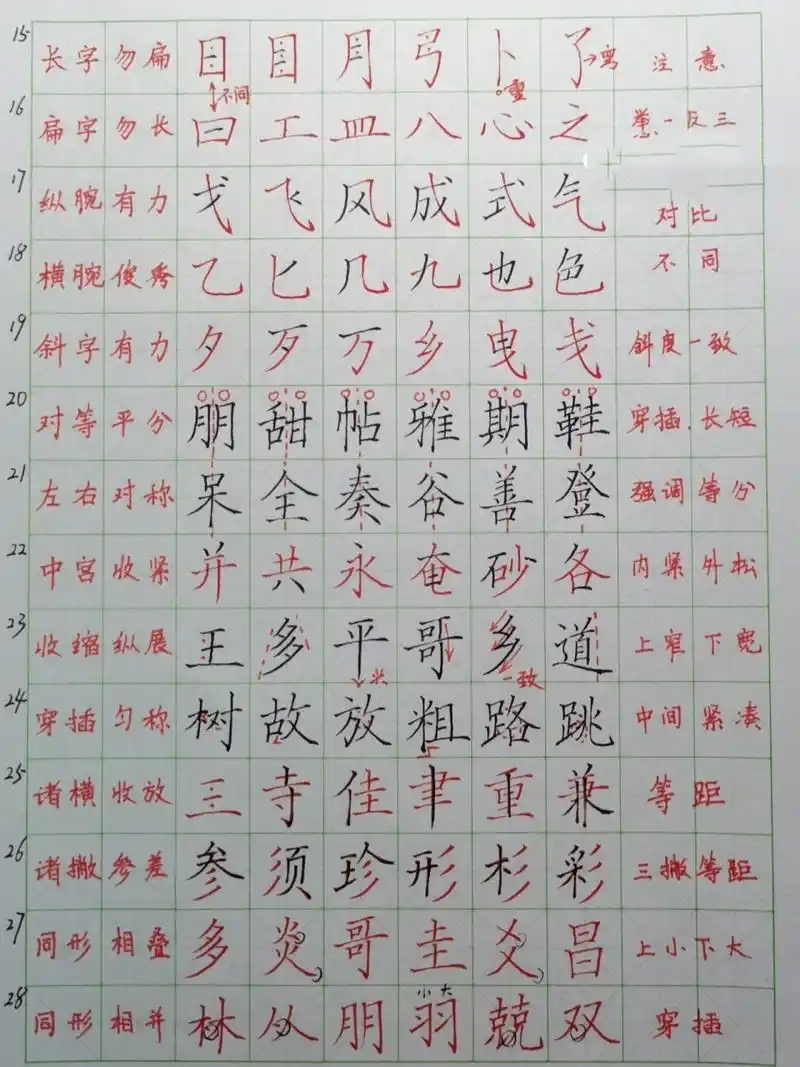 15 长字勿扁 目 目 月 弓 卜 了 →弯 注意
不同 重
16 扁字勿长 曰 工 皿 八 心 之 举一反三
17 纵腕有力 戈 飞 风 成 式 气 对比
18 横腕俊秀 乙 匕 几 九 也 色 不同
19 斜字有力 夕 歹 万 乡 曳 戋 斜度一致
20 对等平分 朋 甜 帖 雅 期 鞋 穿插.长短
21 左右对称 呆 全 奏 谷 善 登 强调等分
22 中宫收紧 并 共 永 奄 砂 各 内紧外松
23 收缩纵展 王 多 平 哥 乡 道 上窄下宽
长 一致
24 穿插匀称 树 故 放 粗 路 跳 中间紧凑
25 诸横收放 三 寺 佳 聿 重 兼 等距
26 诸撇参差 参 须 珍 形 杉 彩 三撇等距
27 同形相叠 多 炎 哥 圭 爻 昌 上小下大
小大
28 同形相并 林 从 朋 羽 兢 双 穿插